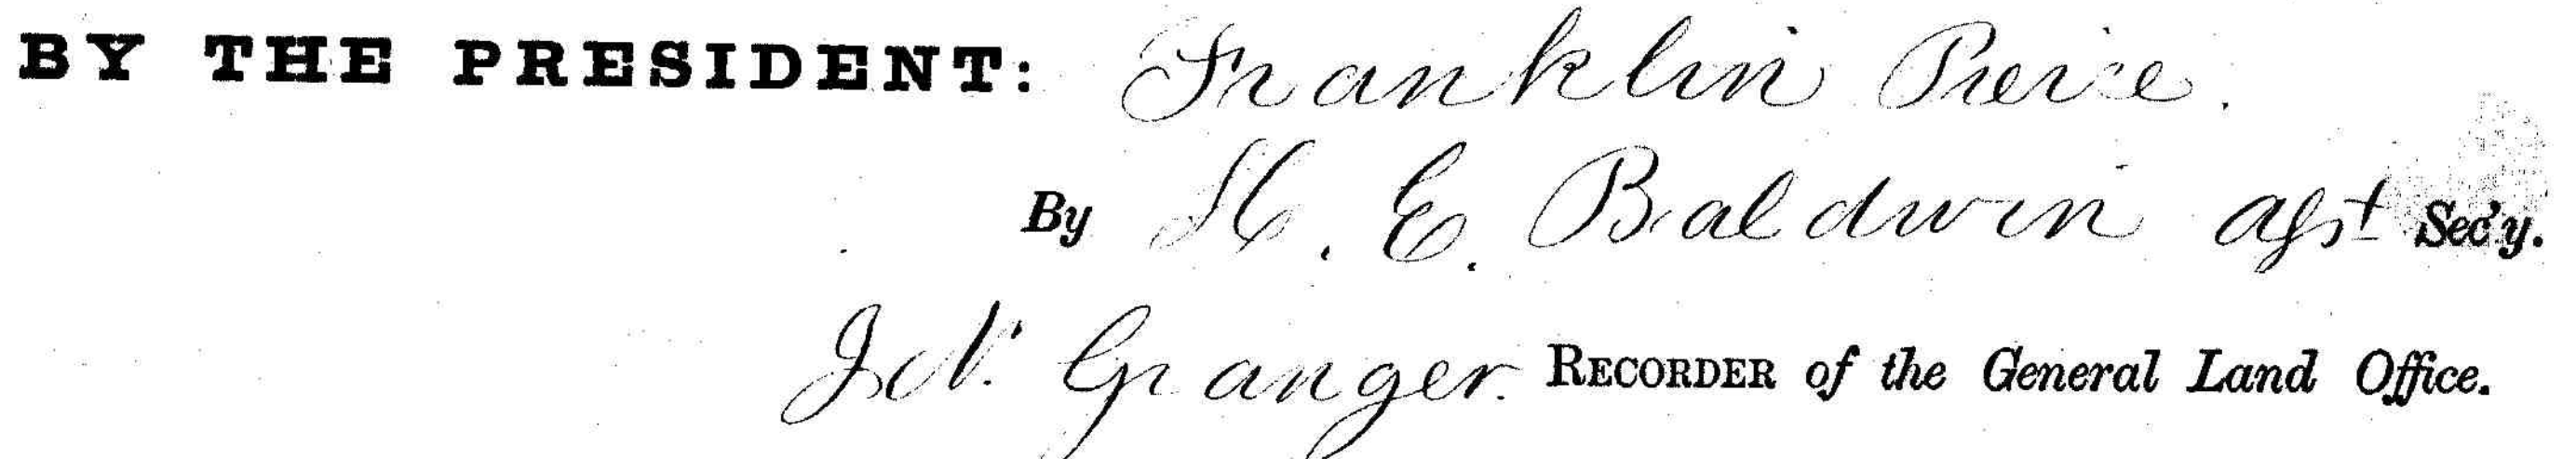 BY THE PRESIDENT: Franklin Pierce.
By H. E. Baldwin asst Sec'y.
J. N. Granger. RECORDER of the General Land Office.